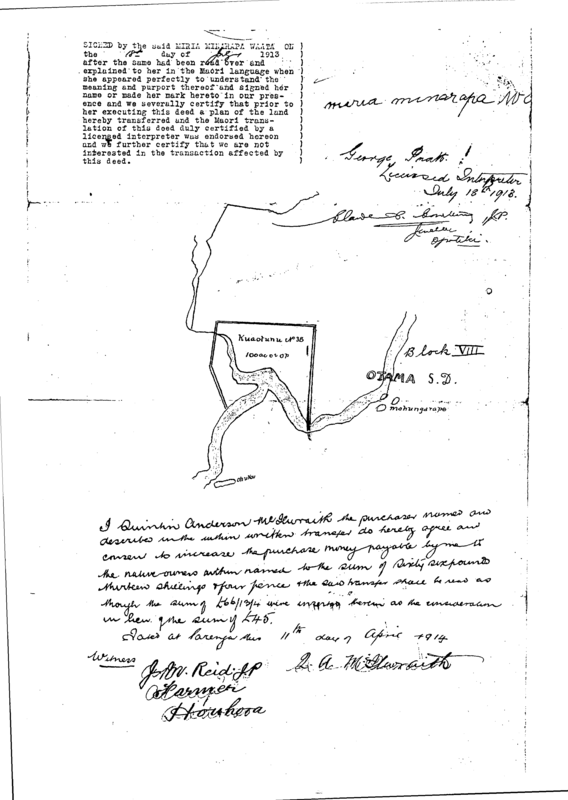 SIGNED by the said MIRIA MINARAPA WAATA ON )
the 18th day of July 1913 )
after the same had been read over and )
explained to her in the Maori language when )
she appeared perfectly to understand the )
meaning and purport thereof and signed her )
name or made her mark hereto in our pres- )
ence and we severally certify that prior to )
her executing this deed a plan of the land )
hereby transferred and the Maori trans- )
lation of this deed duly certified by a )
licensed interpreter was endorsed hereon )
and we further certify that we are not )
interested in the transaction affected by )
this deed. )
maria minarapa
George Pratt
Licensed Interpreter
July 18th 1913.
J.P.
Opotiki.
Kuaotunu No 3B
Block VIII
OTAMA S.D.
mahungarape
I Quintin Anderson McIlwraith the purchaser named and
described in the within written transfer do hereby agree and
consent to increase the purchase money payable by me to
the native owners within named to the sum of Sixty six pounds
thirteen shillings & four pence & the said transfer shall be read as
though the sum of £66/13/4 were inserted therein as the consideration
in lieu of the sum of £45.
Dated at Parenga this 11th day of April 1914
Witness
J. W. Reid. JP
Farmer
Houhora
Q. A. McIlwraith